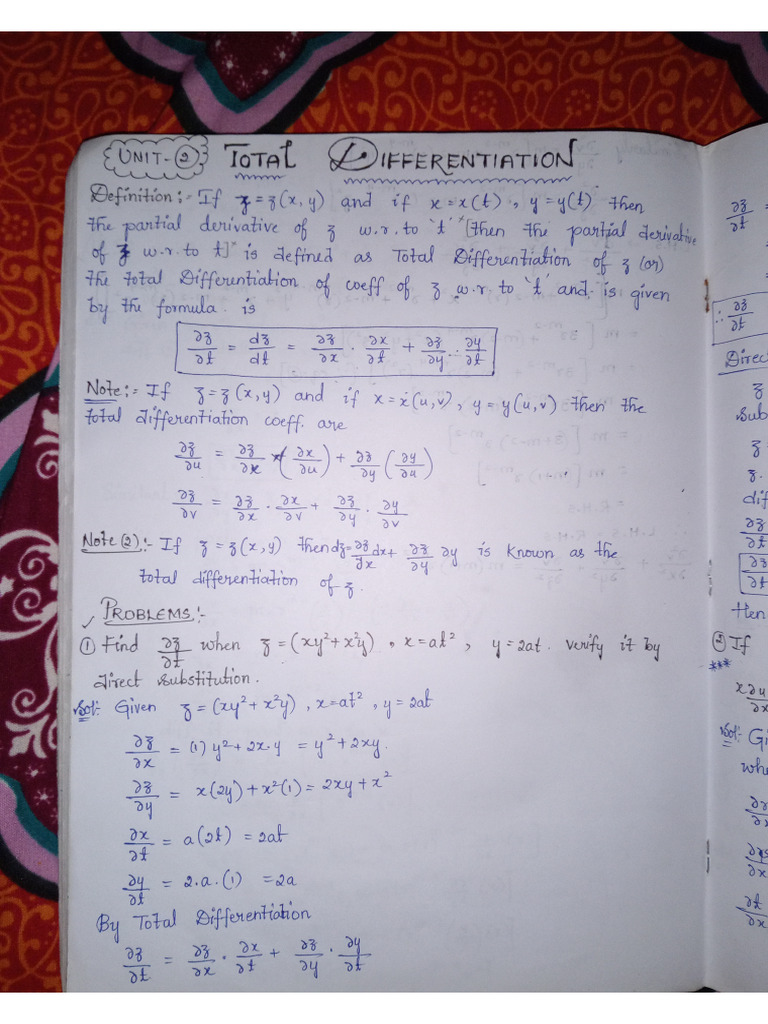 UNIT-② TOTAL DIFFERENTIATION
Definition:- If z = z(x, y) and if x = x(t), y = y(t) then
the partial derivative of z w.r. to 't' *[then the partial derivative
of z w.r. to t]* is defined as Total Differentiation of z (or)
the total Differentiation of coeff of z w.r. to 't' and is given
by the formula is
∂z/∂t = dz/dt = ∂z/∂x · ∂x/∂t + ∂z/∂y · ∂y/∂t
Note:- If z = z(x, y) and if x = x(u, v), y = y(u, v) then the
total differentiation coeff. are
∂z/∂u = ∂z/∂x (∂x/∂u) + ∂z/∂y (∂y/∂u)
∂z/∂v = ∂z/∂x · ∂x/∂v + ∂z/∂y · ∂y/∂v
Note (2):- If z = z(x, y) then dz = ∂z/∂x dx + ∂z/∂y ∂y is known as the
total differentiation of z.
✓ PROBLEMS:-
① Find ∂z/∂t when z = (xy² + x²y), x = at², y = 2at. verify it by
direct substitution.
Sol: Given z = (xy² + x²y), x = at², y = 2at
∂z/∂x = (1) y² + 2x·y = y² + 2xy.
∂z/∂y = x(2y) + x²(1) = 2xy + x²
∂x/∂t = a(2t) = 2at
∂y/∂t = 2·a·(1) = 2a
By Total Differentiation
∂z/∂t = ∂z/∂x · ∂x/∂t + ∂z/∂y · ∂y/∂t
∂z/∂t =
∴ ∂z/∂t
Direct
z
Sub
z =
z.
diff
∂z/∂t
∂z/∂t
Hen
② If
***
x∂u/∂x
Sol:- Gi
whe
∂x
∂x
∂t/∂x